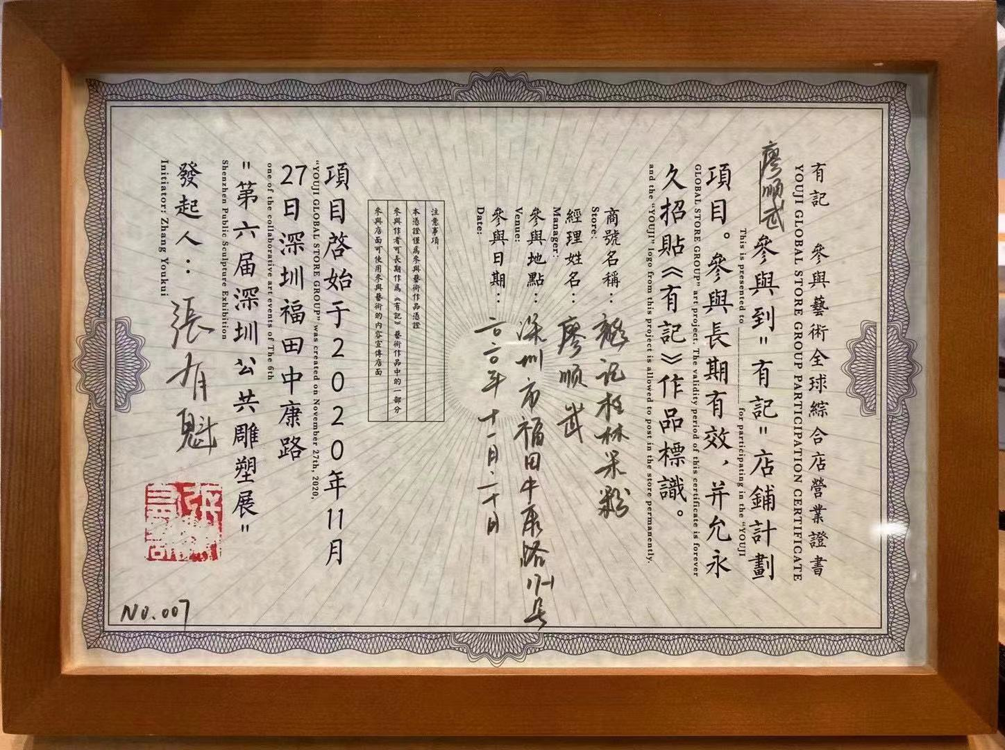 有記 參與藝術全球綜合店營業證書
YOUJI GLOBAL STORE GROUP PARTICIPATION CERTIFICATE
廖順武 參與到"有記"店鋪計劃
This is presented to ________ for participating in the "YOUJI
項目。參與長期有效，并允永
GLOBAL STORE GROUP" art project. The validity period of this certificate is forever
久招貼《有記》作品標識。
and the "YOUJI" logo from this project is allowed to post in the store permanently.
商號名稱：記桂林米粉
Store:
經理姓名：廖順武
Manager:
參與地點：深圳市福田中康路
Venue:
參與日期：二〇二〇年十一月二十日
Date:
注意事項：
本憑證僅爲參與藝術作品憑證
參與作者可長期作爲《有記》藝術作品中的一部分
參與店面可使用參與藝術的內容宣傳店面
項目啓始于2020年11月
"YOUJI GLOBAL STORE GROUP" was created on November 27th, 2020,
27日深圳福田中康路
one of the collaborative art events of The 6th
"第六届深圳公共雕塑展"
Shenzhen Public Sculpture Exhibition
發起人：張有魁
Initiator: Zhang Youkui
No.007